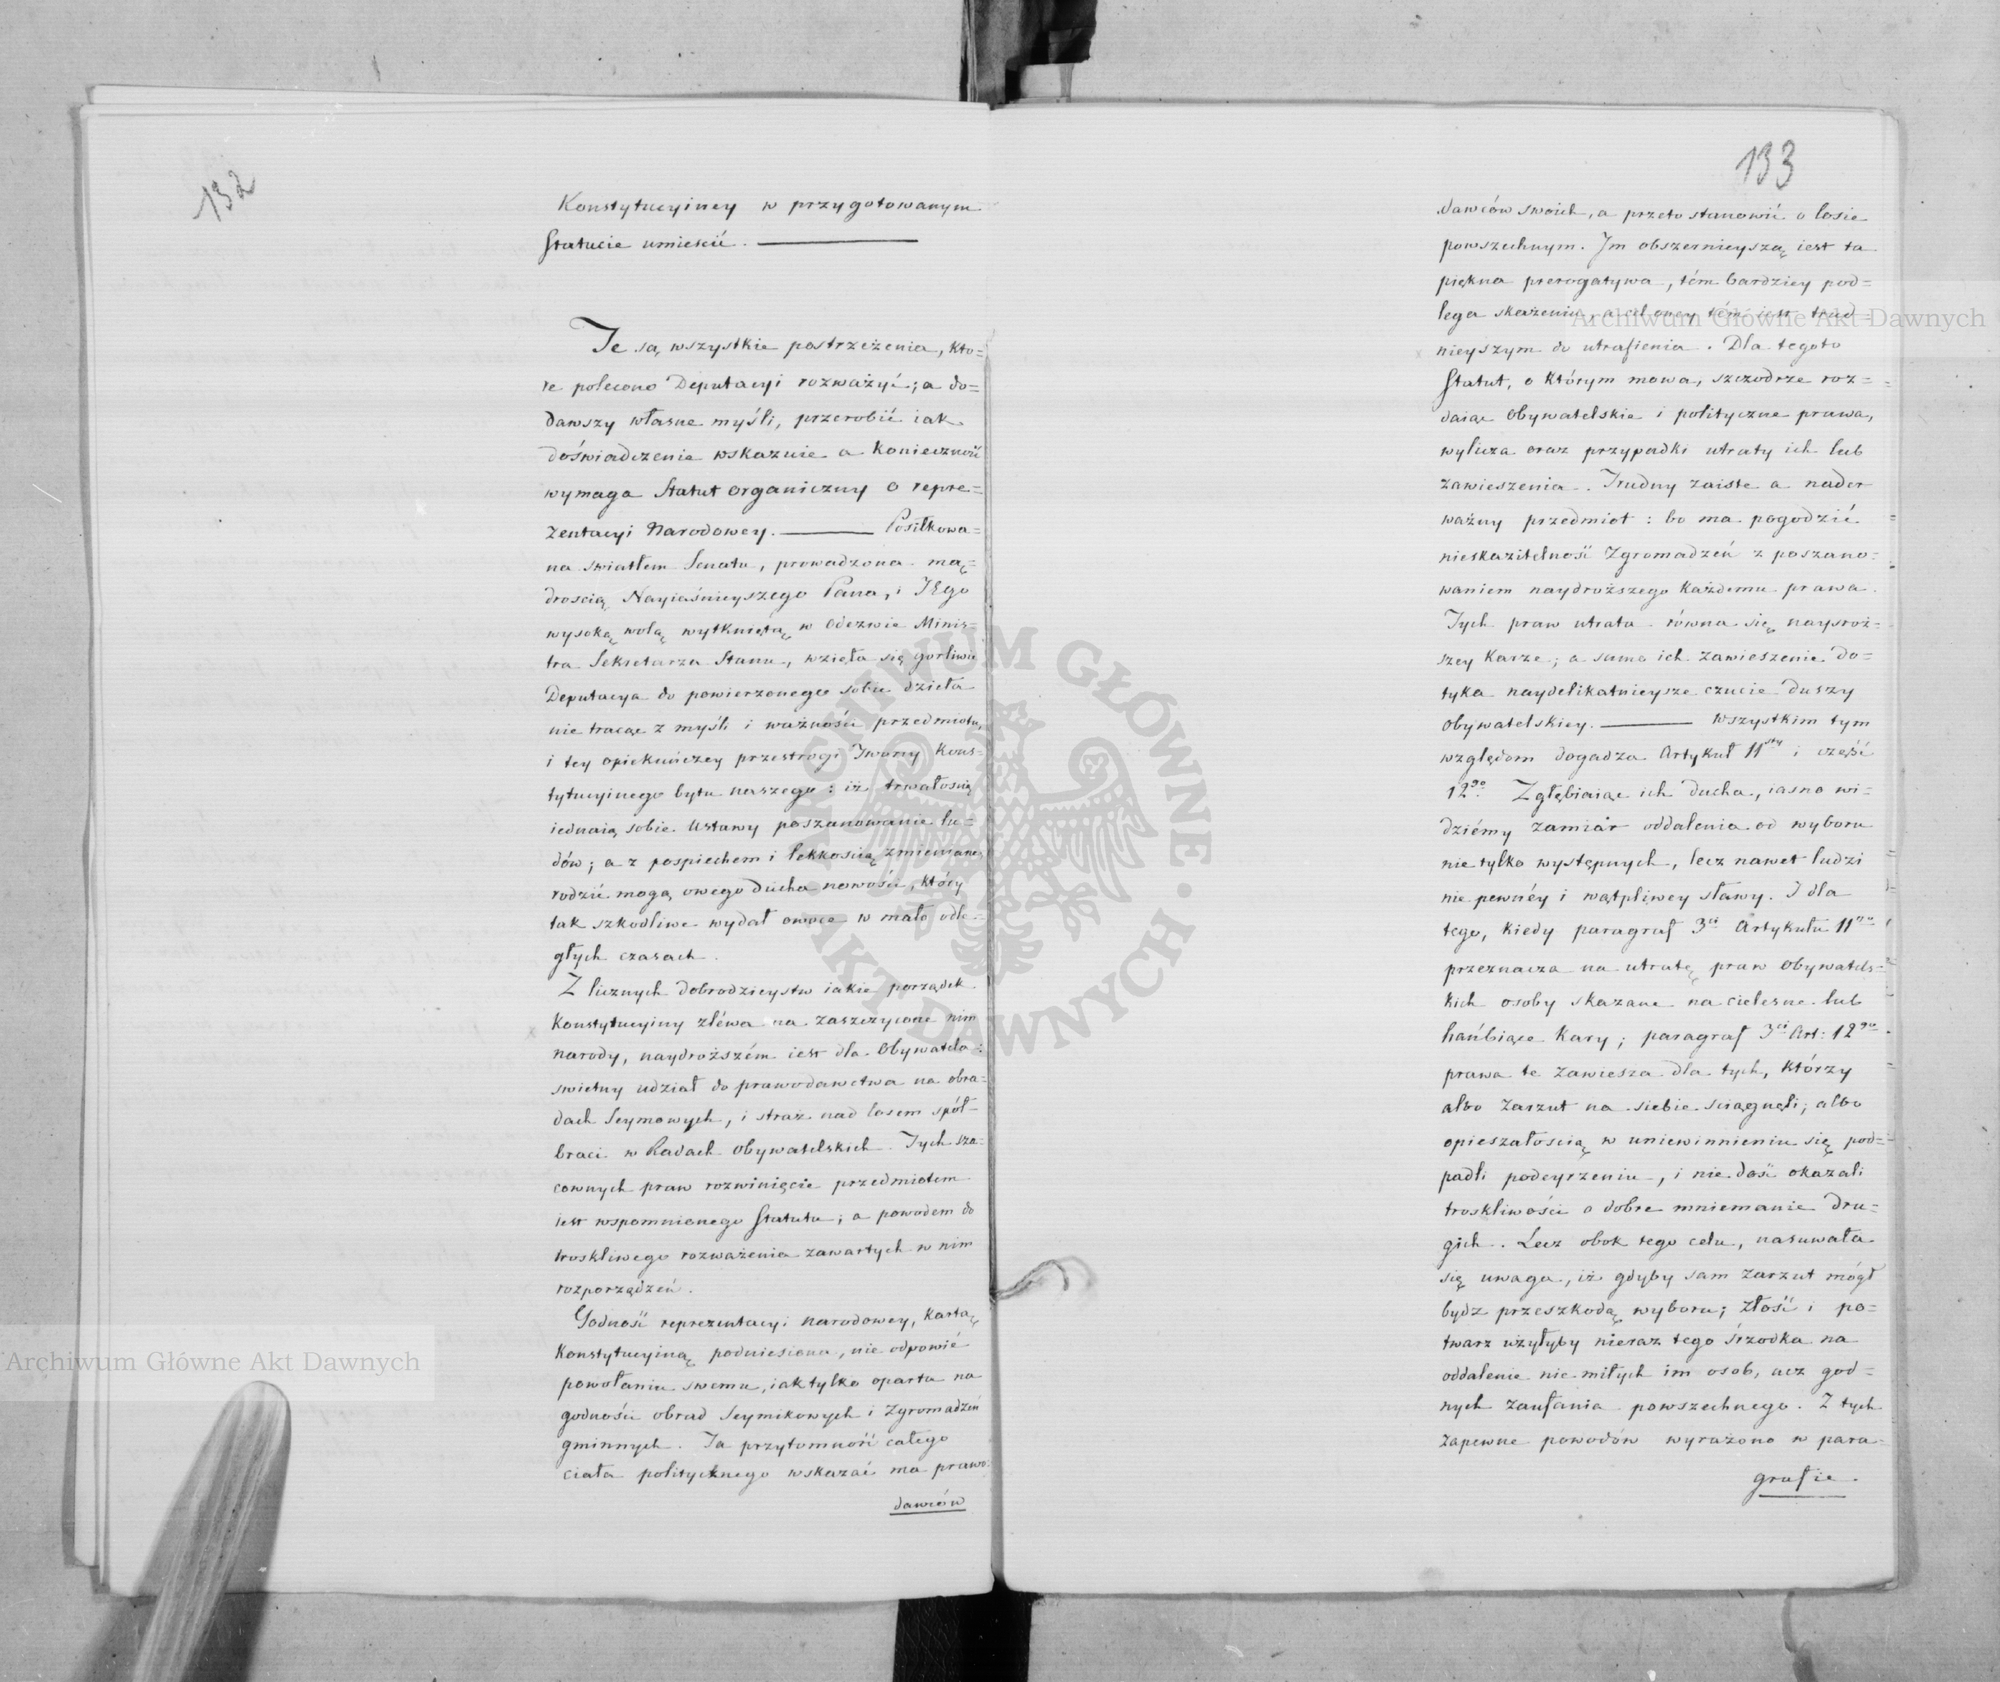 132
Konstytucyiney w przygotowanym
Statucie umieścić.
Te są wszystkie postrzeżenia, któ-
re polecono Deputacyi rozważyć; a do=
dawszy własne myśli, przerobić iak
doświadczenie wskazuie a konieczność
wymaga Statut organiczny o repre=
zentacyi Narodowey. Posiłkowa=
na światłem Senatu, prowadzona mą=
drością Nayiaśnieyszego Pana, i JEgo
wysoką wolą wytkniętą w Odezwie Minis=
tra Sekretarza Stanu, wzięła się gorliwie
Deputacya do powierzonego sobie dzieła
nie tracąc z myśli i ważności przedmiotu,
i tey opiekuńczey przestrogi Twórcy Kons=
tytucyinego bytu naszego: iż trwałością
iednaią sobie Ustawy poszanowanie lu=
dów; a z pospiechem i lekkością zmieniane
rodzić mogą owego ducha nowości, który
tak szkodliwe wydał owoce w mało odle-
głych czasach.
Z licznych dobrodzieystw iakie porządek
Konstytucyiny zléwa na zaszczycone nim
narody, naydroższém iest dla Obywatela:
świetny udział do prawodawctwa na obra=
dach Seymowych, i straż nad losem spół-
braci w Radach Obywatelskich. Tych sza-
cownych praw rozwinięcie przedmiotem
iest wspomnionego Statutu; a powodem do
troskliwego rozważenia zawartych w nim
rozporządzeń.
Godność reprezentacyi narodowey, Kartą
Konstytucyiną podniesiona, nie odpowié
powołaniu swemu, iak tylko oparta na
godności obrad Seymikowych i Zgromadzeń
gminnych. Ta przytomność całego
ciała politycznego wskazać ma prawo=
dawców
133
dawców swoich, a przeto stanowić o losie
powszechnym. Im obszernieyszą iest ta
piękna prerogatywa, tém bardziey pod=
lega skażeniu, a cel oney tém iest trud=
nieyszym do utrafienia. Dla tegoto
Statut, o którym mowa, szczodrze roz=
daiąc Obywatelskie i polityczne prawa,
wylicza oraz przypadki utraty ich lub
zawieszenia. Trudny zaiste a nader
ważny przedmiot: bo ma pogodzić
nieskazitelność Zgromadzeń z poszano=
waniem naydroższego każdemu prawa.
Tych praw utrata równa się naysroż=
szey karze; a samo ich zawieszenie do=
tyka naydelikatnieysze czucie duszy
Obywatelskiey. Wszystkim tym
względom dogadza Artykuł 11sty i część
12go. Zgłębiaiąc ich ducha, iasno wi=
dziémy zamiar oddalenia od wyboru
nie tylko występnych, lecz nawet ludzi
nie pewnéy i wątpliwey sławy. I dla
tego, kiedy paragraf 3ci Artykułu 11go
przeznacza na utratę praw Obywatels=
kich osoby skazane na cielesne lub
hańbiące kary; paragraf 3ci Art: 12go
prawa te zawiesza dla tych, którzy
albo zarzut na siebie sciągnęli; albo
opieszałością w uniewinnieniu się pod=
padli podeyrzeniu, i nie dość okazali
troskliwości o dobre mniemanie dru=
gich. Lecz obok tego celu, nasuwała
się uwaga, iż gdyby sam zarzut mógł
bydz przeszkodą wyboru; złość i po=
twarz użyłyby nieraz tego śrzodka na
oddalenie nie miłych im osób, acz god=
nych zaufania powszechnego. Z tych
zapewne powodów wyrażono w para-
grafie.
Archiwum Główne Akt Dawnych
Archiwum Główne Akt Dawnych
ARCHIWUM GŁÓWNE · AKT DAWNYCH ·